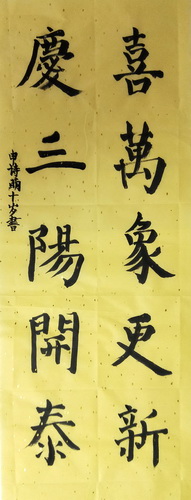 喜萬象更新
慶三陽開泰
申詩十岁書